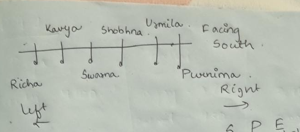 Kavya Shobhna Urmila Facing
South.
Richa Swarna Purnima.
Left Right
S P E